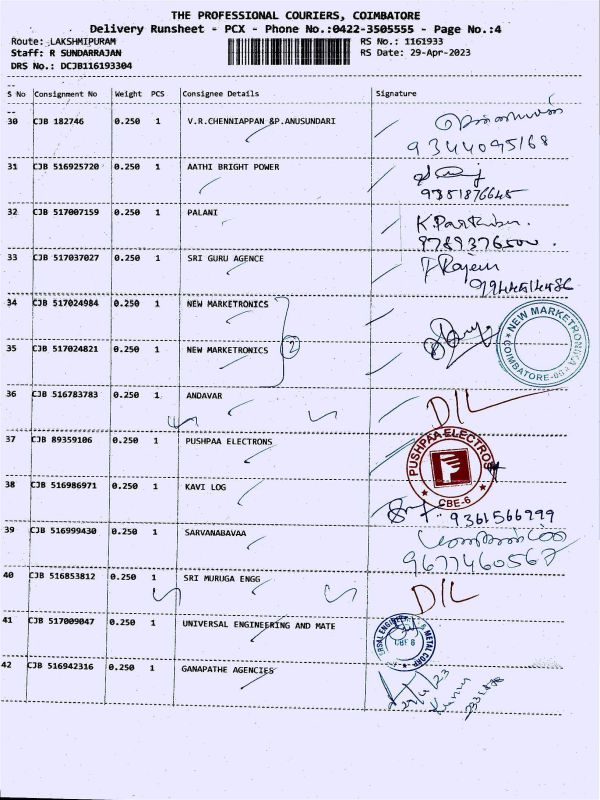 THE PROFESSIONAL COURIERS, COIMBATORE
Delivery Runsheet - PCX - Phone No.:0422-3505555 - Page No.:4
Route: LAKSHMIPURAM RS No.: 1161933
Staff: R SUNDARRAJAN RS Date: 29-Apr-2023
DRS No.: DCJB116193304
S No Consignment No Weight PCS Consignee Details Signature
30 CJB 182746 0.250 1 V.R.CHENNIAPPAN &P.ANUSUNDARI
9344095168
31 CJB 516925720 0.250 1 AATHI BRIGHT POWER
9351876645
32 CJB 517007159 0.250 1 PALANI K.Parthiban
9789376500
33 CJB 517037027 0.250 1 SRI GURU AGENCE T.Rajesh
34 CJB 517024984 0.250 1 NEW MARKETRONICS
2
NEW MARKETRONICS INDIA
COIMBATORE-
35 CJB 517024821 0.250 1 NEW MARKETRONICS
36 CJB 516783783 0.250 1 ANDAVAR D/L
37 CJB 89359106 0.250 1 PUSHPAA ELECTRONS
PUSHPAA ELECTRONS
CBE-6
38 CJB 516986971 0.250 1 KAVI LOG
9361566999
39 CJB 516999430 0.250 1 SARVANABAVAA
9677460567
40 CJB 516853812 0.250 1 SRI MURUGA ENGG D/L
41 CJB 517009047 0.250 1 UNIVERSAL ENGINEERING AND MATE
METAL CORP.
CBE 6
42 CJB 516942316 0.250 1 GANAPATHE AGENCIES
29/4/23